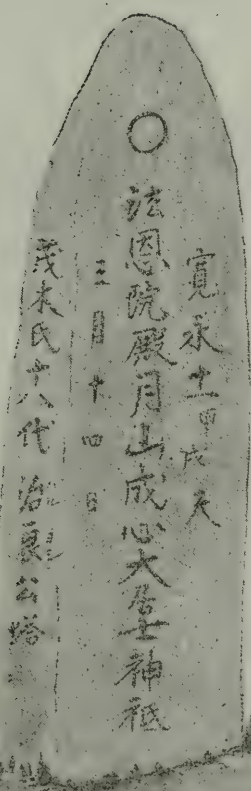 寛永十一甲戌天
○法恩院殿月山成心大居士神祇
三月十四日
茂木氏十八代 治良公塔